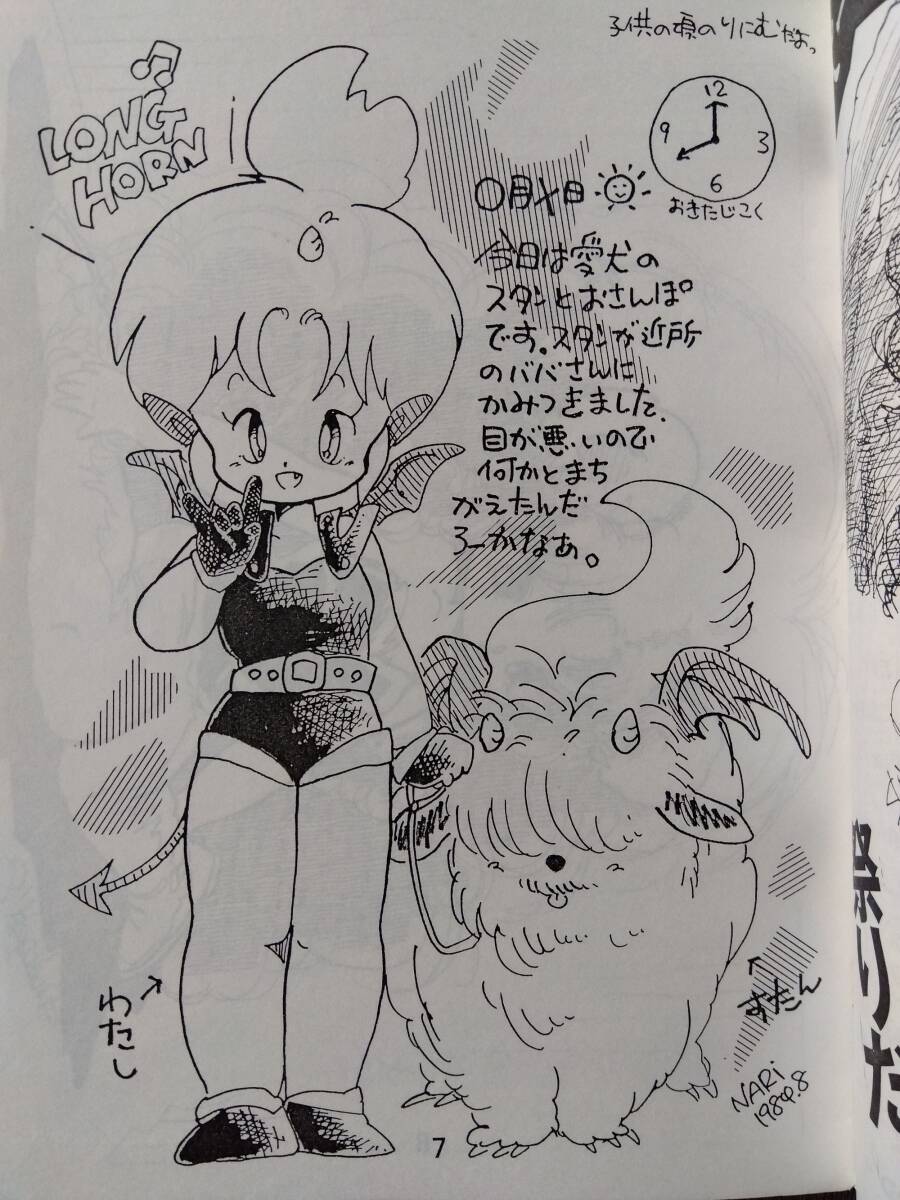 子供の頃のりにむだよっ
LONG
HORN
12
9
3
6
おきたじこく
○月×日
今日は愛犬の
スタンとおさんぽ
です。スタンが近所
のババさんに
かみつきました、
目が悪いので
何かとまち
がえたんだ
ろーかなぁ。
わたし
すたん
NARi
198φ.8
7
祭りだ